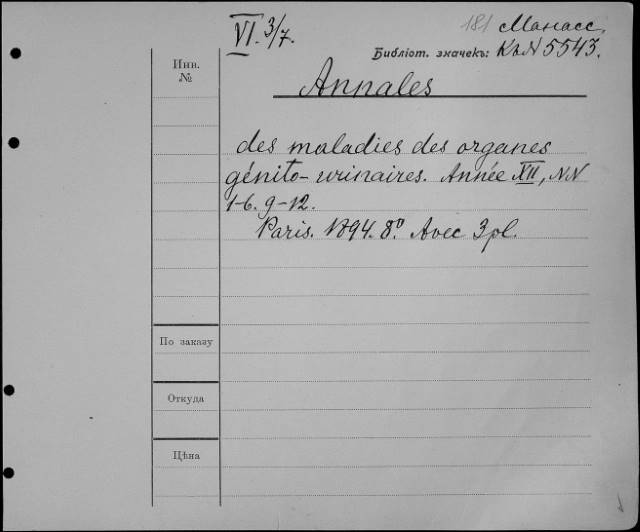 VI. 3/7.
181 Манасс.
Библіот. значекъ: К. № 5543.
Инв.
№
Annales
des maladies des organes
génito-urinaires. Année XII, NN
1-6. 9-12.
Paris. 1894. 8º. Avec 3 pl.
По заказу
Откуда
Цѣна